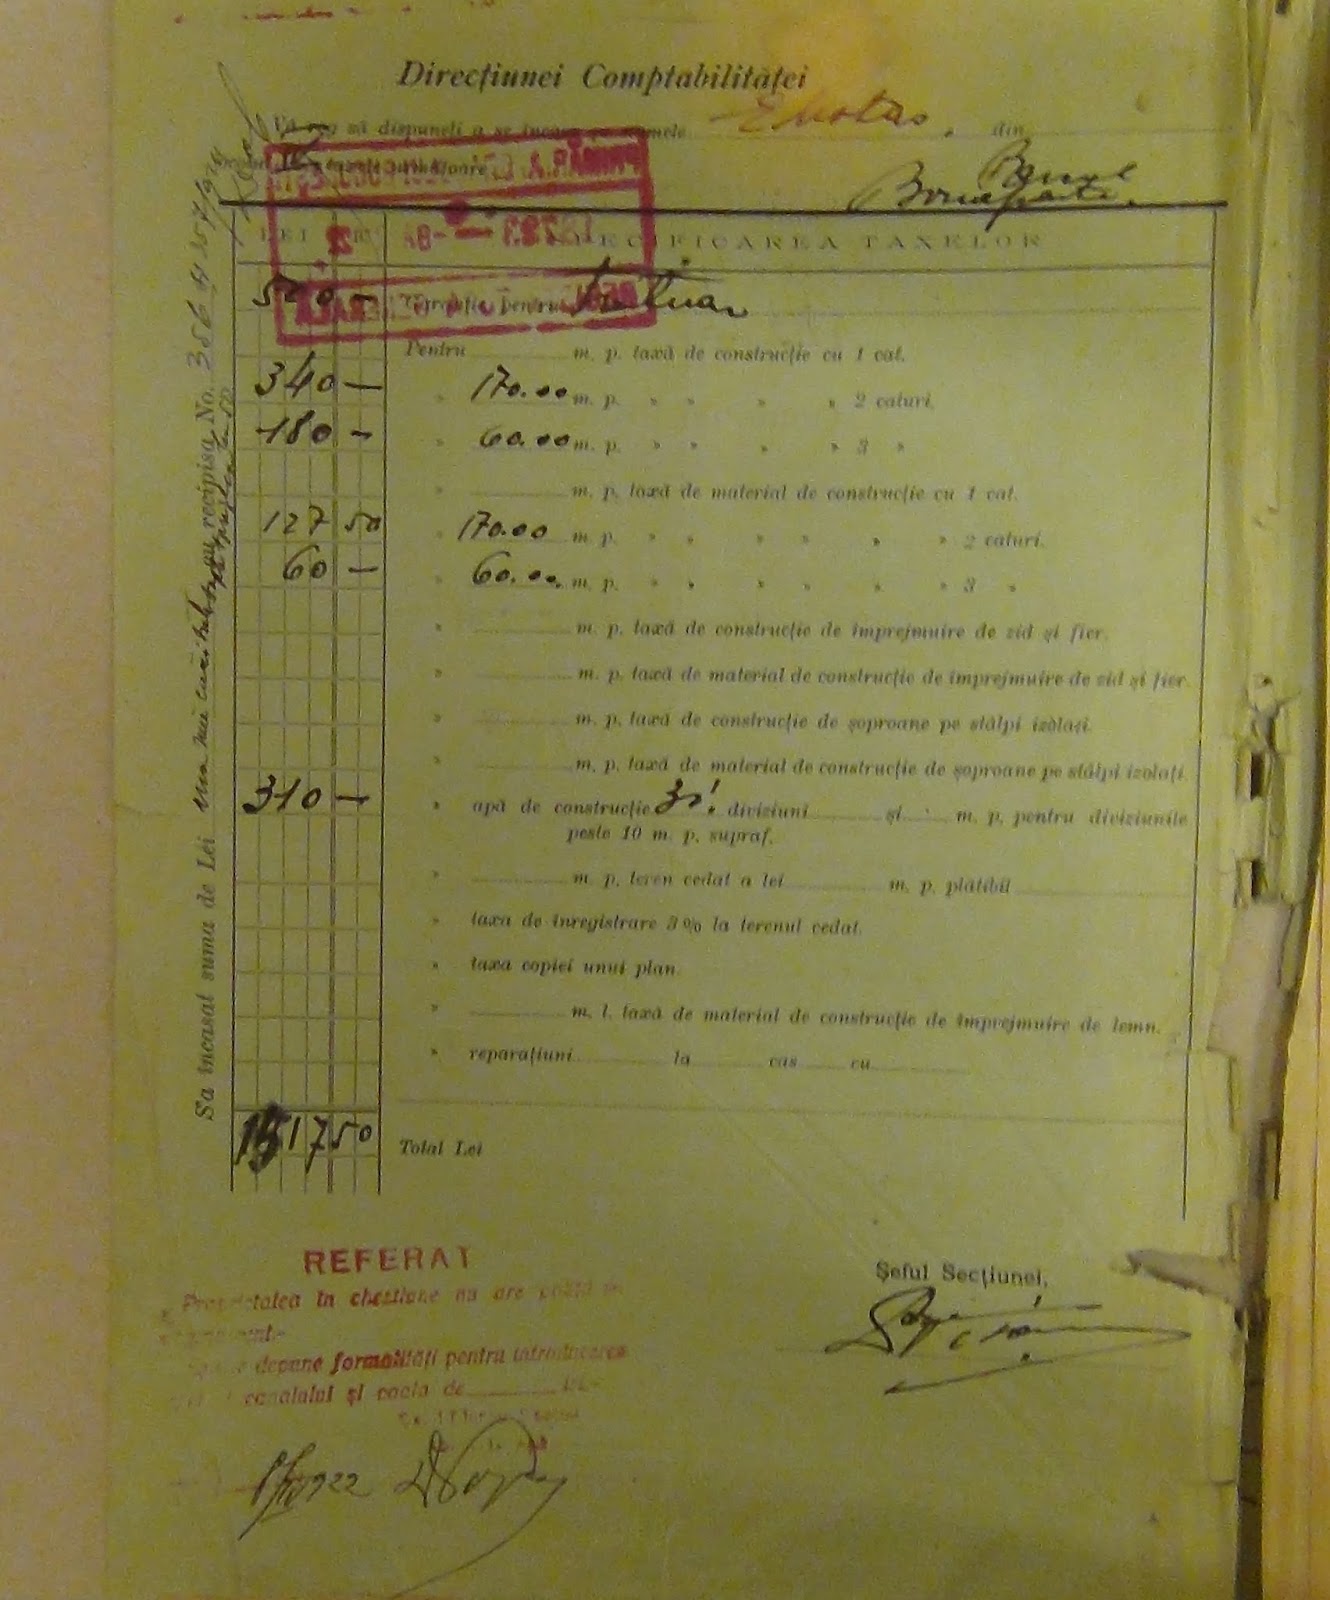 Direcțiunei Comptabilităței
să dispuneți a se pe numele E Kostas, din
Bonaparte
LEI SPECIFICAREA TAXELOR
500 — Garanție pentru trotuar
Pentru m. p. taxă de construcție cu 1 cat.
340 — » 170.00 m. p. » » » » 2 caturi.
180 — » 60.00 m. p. » » » » 3 »
» m. p. taxă de material de construcție cu 1 cat.
127 50 » 170.00 m. p. » » » » » » 2 caturi.
60 — » 60.00 m. p. » » » » » » 3 »
» m. p. taxă de construcție de împrejmuire de zid și fier.
» m. p. taxă de material de construcție de împrejmuire de zid și fier.
» m. p. taxă de construcție de șoproane pe stâlpi izolați.
» m. p. taxă de material de construcție de șoproane pe stâlpi izolați.
310 — » apă de construcție 31 diviziuni și m. p. pentru diviziunile
peste 10 m. p. supraf.
» m. p. teren cedat a lei m. p. plătibil
» taxa de înregistrare 3% la terenul cedat.
» taxa copiei unui plan.
» m. l. taxă de material de construcție de împrejmuire de lemn.
» reparațiuni la cas cu
1517 50 Total Lei
Sa încasat suma de Lei recipisa No. 386
Șeful Secțiunei,
REFERAT
Proprietatea în chestiune nu are
depune formalități pentru introducerea
canalului și costa de
1922